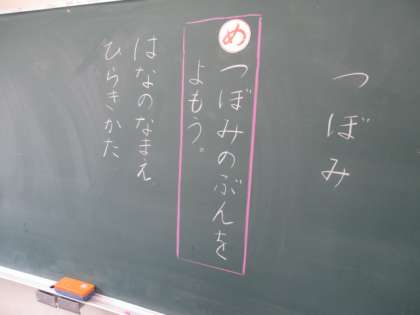 つぼみ
め
つぼみのぶんを
よもう。
はなのなまえ
ひらきかた